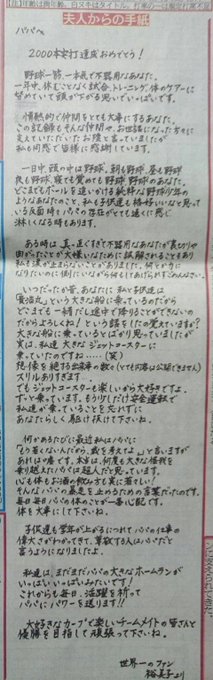 夫人からの手紙
パパへ
2000本安打達成おめでとう!
野球一筋一本氣で不器用なあなた。
一年中、休むことなく試合、トレーニング、体のケアーに
努めていて頭が下がる思いでいっぱいです。
情熱的で仲間をとても大事にするあなた。
この記録もそんな仲間や、お世話になった方々に
支えていただいたお陰と言っていましたが
私も同感で皆様に感謝しています。
一日中、頭の中は野球。朝も野球 昼も野球
夜も野球、寝ても覚めても野球野球のあなた。
どこまでもボールを追いかける純粋な野球少年の
ようなあなたのこと、私も子供達も格好いいなと思って
いる反面時々パパの存在がとても遠くに感じ
淋しくなる時もあります。
ある時は、真っ直ぐすぎて不器用なあなたが裏切りや
曲がったことが大嫌いなために誤解されることもあり
私も涙が止まらないことがありました。何とか力に
なりたいのに側にいながら何もしてあげられずごめんなさい。
いつだったか昔、あなたに私と子供達は
という大きな船に乗っているのだから
どこまでも一緒だし途中で降りることができない
のだからよろしくね!という話をしたの覚えていますか?
大きな船に乗っているとばかり思っていましたが
実は、私達 大きなジェットコースターに
乗っていたのですね……(笑)
想像を絶する出来事の数々(とてもお客様に公認できません)
スリルあります。
でもジェットコースターも楽しいから大好きですよ。
ずっと乗っています。もう少しだけ安全運転で
私達が乗っていることを忘れずに
あなたらしく駆け抜けて下さいね。
何かあるたびに最近私はパパに
「もう若くないんだから、歳を考えてよ。」と言いますが
あれはウソです。本当は、何度も大きな怪我を
乗り超えたパパは超人だと思っています。
心も体もお酒の飲み方も実に若い!
そんなパパの暴走を止めるための言葉だったのです。
毎日毎日パパの体のことが一番心配です。
体を大事にして下さいね。
子供達も学年が上がるにつれてパパの仕事の
偉大さがわかってきて、尊敬する人はパパだと
言うようになりましたよ。
私達は、まだまだパパの大きなホームランが
いっぱいいっぱいみたいです!
これからも毎日、活躍を祈って
パパにパワーを送ります!!
大好きなカープで楽しいチームメイトの皆さんと
優勝を目指して頑張って下さいね。
世界一のファン
裕美子より